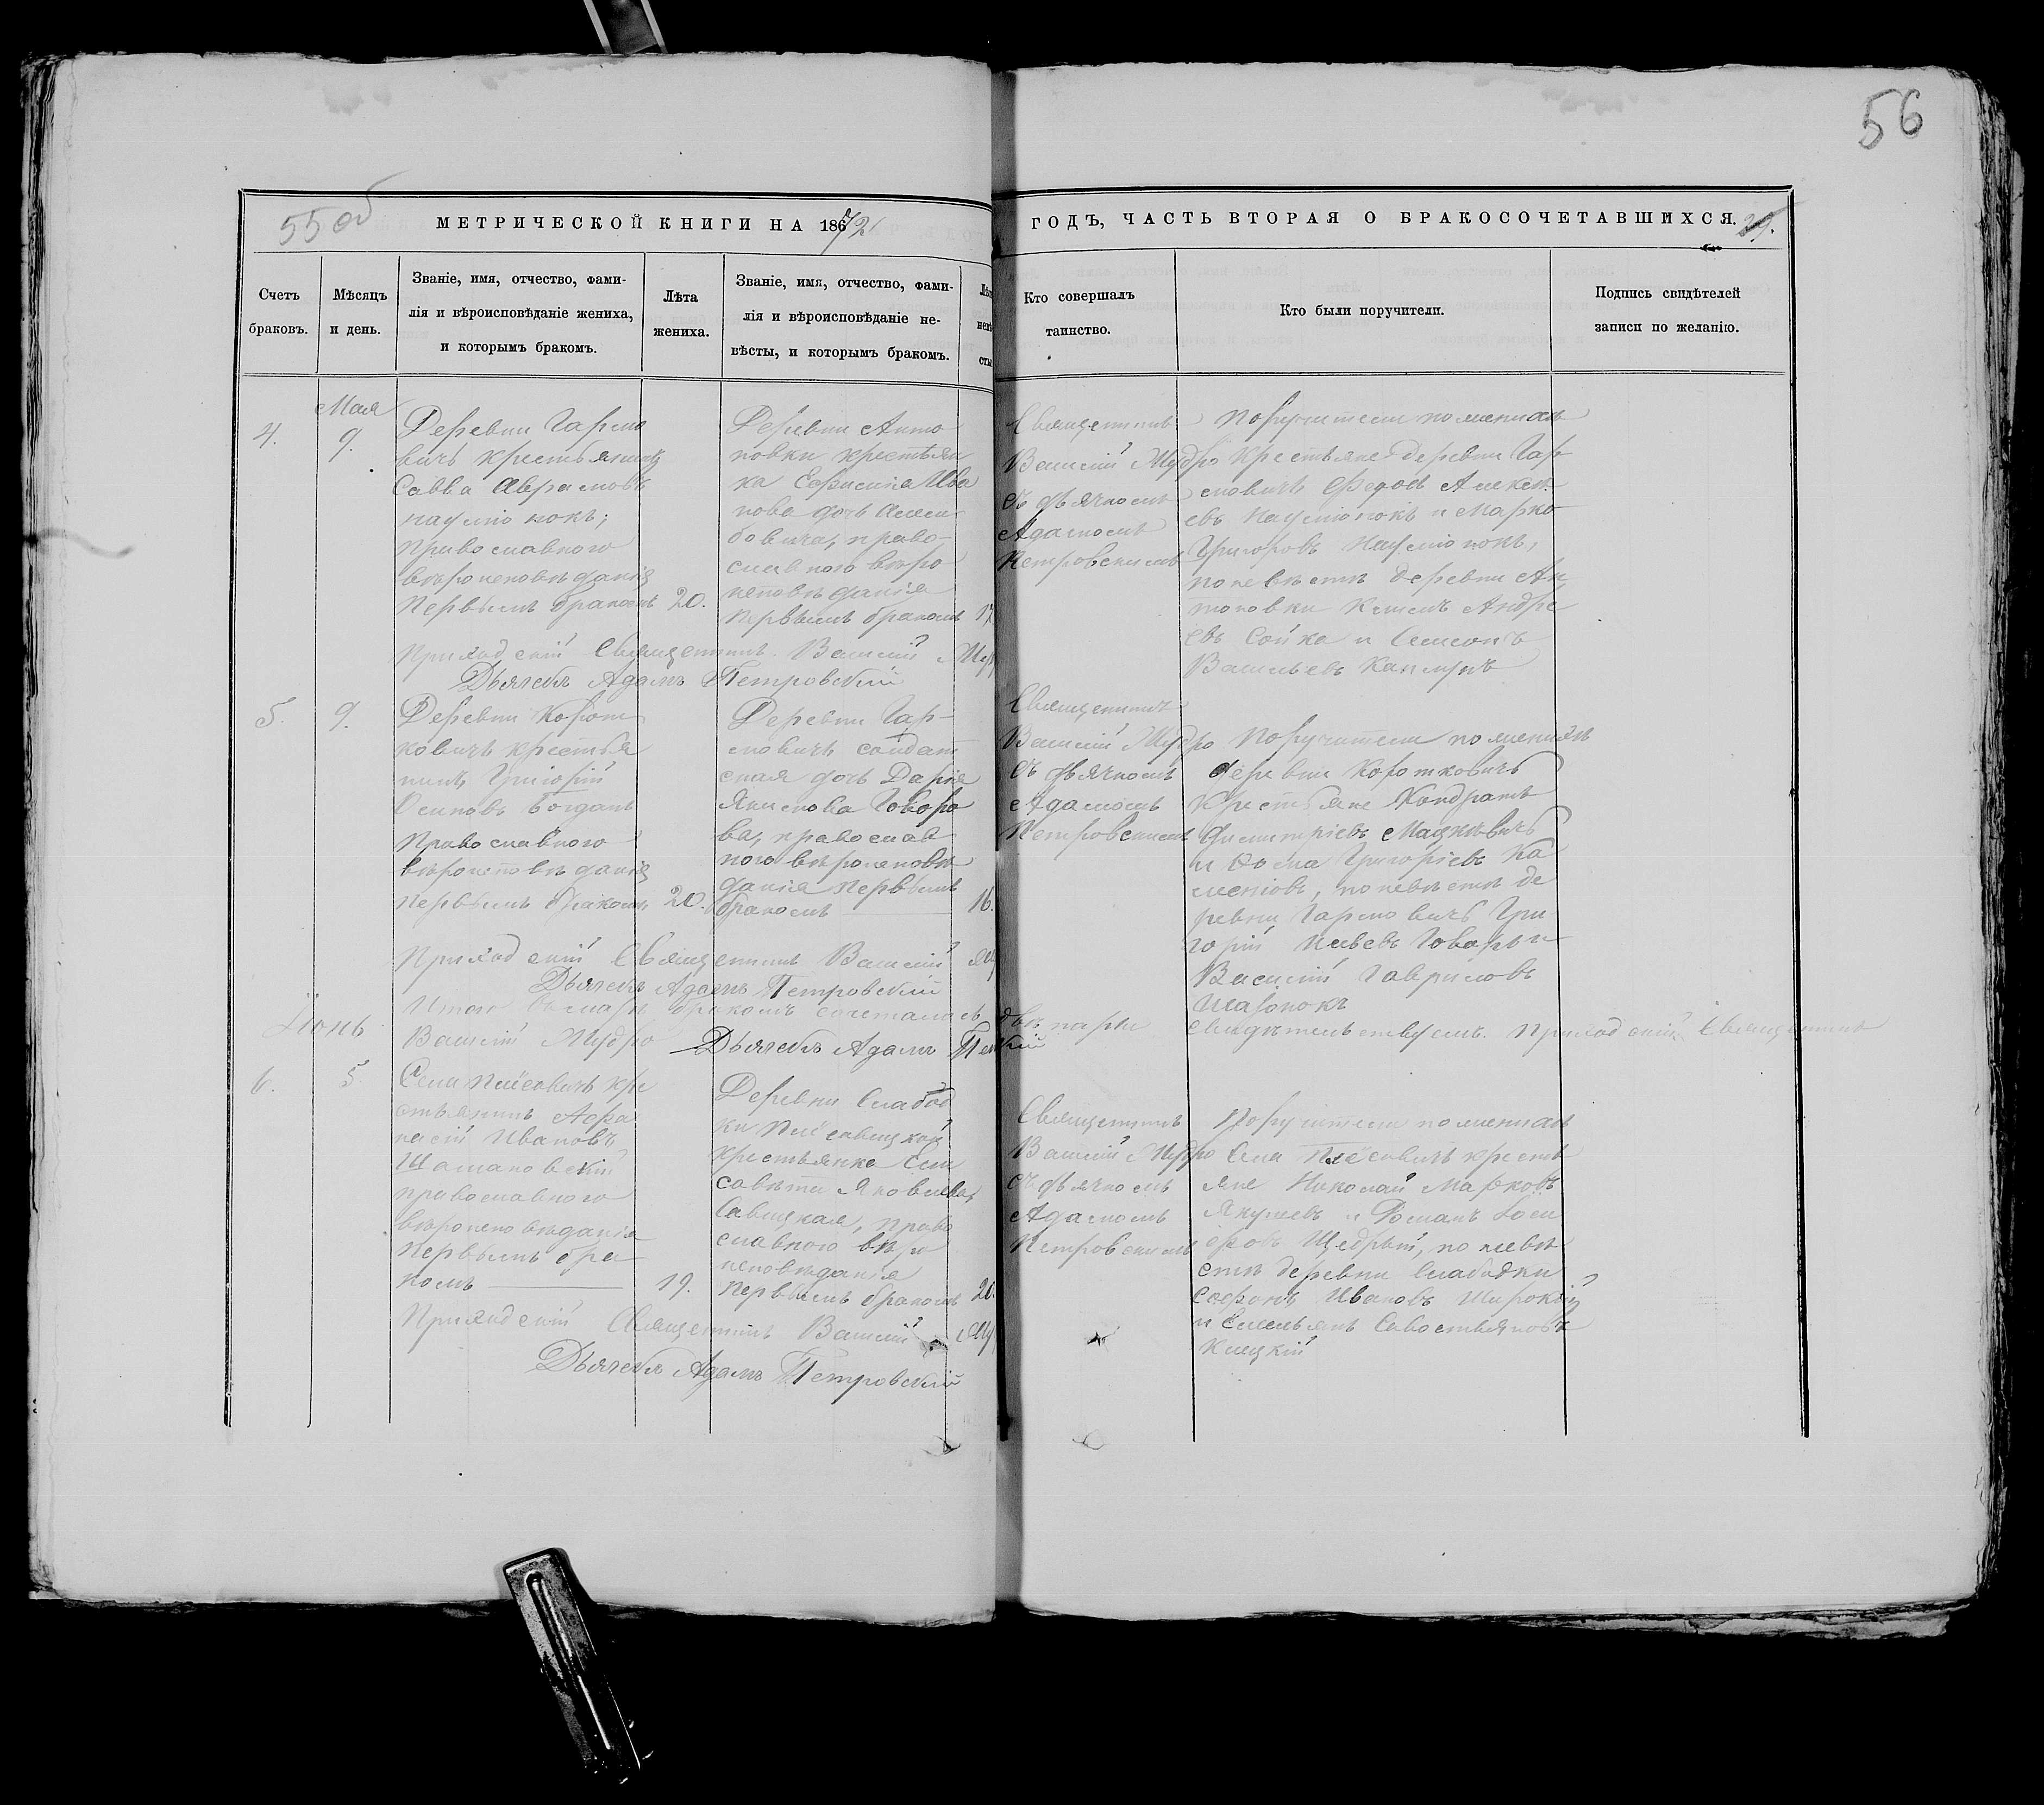 56
55 об
МЕТРИЧЕСКОЙ КНИГИ НА 1872
ГОДЪ, ЧАСТЬ ВТОРАЯ О БРАКОСОЧЕТАВШИХСЯ.
Счетъ
браковъ.
Мѣсяцъ
и день.
Званіе, имя, отчество, фами-
лія и вѣроисповѣданіе жениха,
и которымъ бракомъ.
Лѣта
жениха.
Званіе, имя, отчество, фами-
лія и вѣроисповѣданіе не-
вѣсты, и которымъ бракомъ.
Кто совершалъ
таинство.
Кто были поручители.
Подпись свидѣтелей
записи по желанію.
4.
Мая
9.
Деревни Гармо
вичъ крестьянинъ
Савва Аврамовъ
Наумюнокъ;
Православного
вѣроисповѣданія
первымъ бракомъ
20.
Деревни Анто
новки крестьян
ка Ефимія Ива
нова дочь
православного вѣро
исповѣданія
первымъ бракомъ
17
Священникъ
Василій Мудро
съ дьячкомъ
Адамомъ
Петровскимъ
Поручители по женихѣ
крестьяне деревни Гар
мовичъ Федоръ Алексѣ
евъ Наумюнокъ и Марко
Григоровъ Наумюнокъ,
по невѣстѣ деревни Ан
тоновки Климъ Андре
евъ Сойка и Симонъ
Васильевъ
Приходскій Священникъ Василій Муд
Дьячекъ Адамъ Петровскій
5.
9.
Деревни Корот
ковичъ крестья
нинъ Григорій
Осиповъ Богданъ
Православного
вѣроисповѣданія
первымъ бракомъ
20.
Деревни Гар-
мовичъ солдат
ская дочь Дарія
Якимова Говоро
ва, православ
ного вѣроисповѣ
данія первымъ
бракомъ
16.
Священникъ
Василій Мудро
съ дьячкомъ
Адамомъ
Петровскимъ
Поручители по женихѣ
деревни Коротковичъ
крестьяне Кондратъ
Димитріевъ Мацкѣвичъ
и Фома Григоріевъ Ка
меновъ, по невѣстѣ де
ревни Гармовичъ Гри
горій
Василій Гавриловъ
Приходскій Священникъ Василій Му
Дьячекъ Адамъ Петровскій
Итого въ маѣ бракомъ сочеталось двѣ пары
свидѣтельствуемъ. Приходскій Священникъ
Василій Мудро Дьячекъ Адамъ Пет кій
Іюнь
6.
5.
крестьянинъ Афа
насій Ивановъ
Шамановскій
православного
вѣроисповѣданія
первымъ бра
комъ
19.
Деревни Слабод
ки
крестьянка Ели
савета Яковлева
Савицкая, право
славного вѣро
исповѣданія
первымъ бракомъ
20.
Священникъ
Василій Мудро
съ дьячкомъ
Адамомъ
Петровскимъ
Поручители по женихѣ
крестьяне Николай Марковъ
и Романъ
Щедрый, по невѣ
стѣ деревни Слабодки
Софонъ Ивановъ Широкій
и Емельянъ Савостьяновъ
Клецкій
Приходскій Священникъ Василій Му
Дьячекъ Адамъ Петровскій